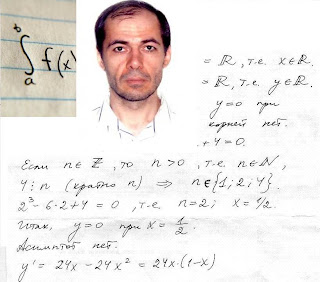 ∫ₐᵇ f(x
= ℝ, т.е. x∈ℝ.
= ℝ, т.е. y∈ℝ.
y=0 при
корней нет.
+4=0.
Если n∈ℤ, то n>0, т.е. n∈ℕ,
4⋮n (кратно n) ⇒ n∈{1; 2; 4}.
2³-6·2+4=0, т.е. n=2; x=1/2.
Итак, y=0 при x=1/2.
Асимптот нет.
y'=24x-24x²=24x·(1-x)